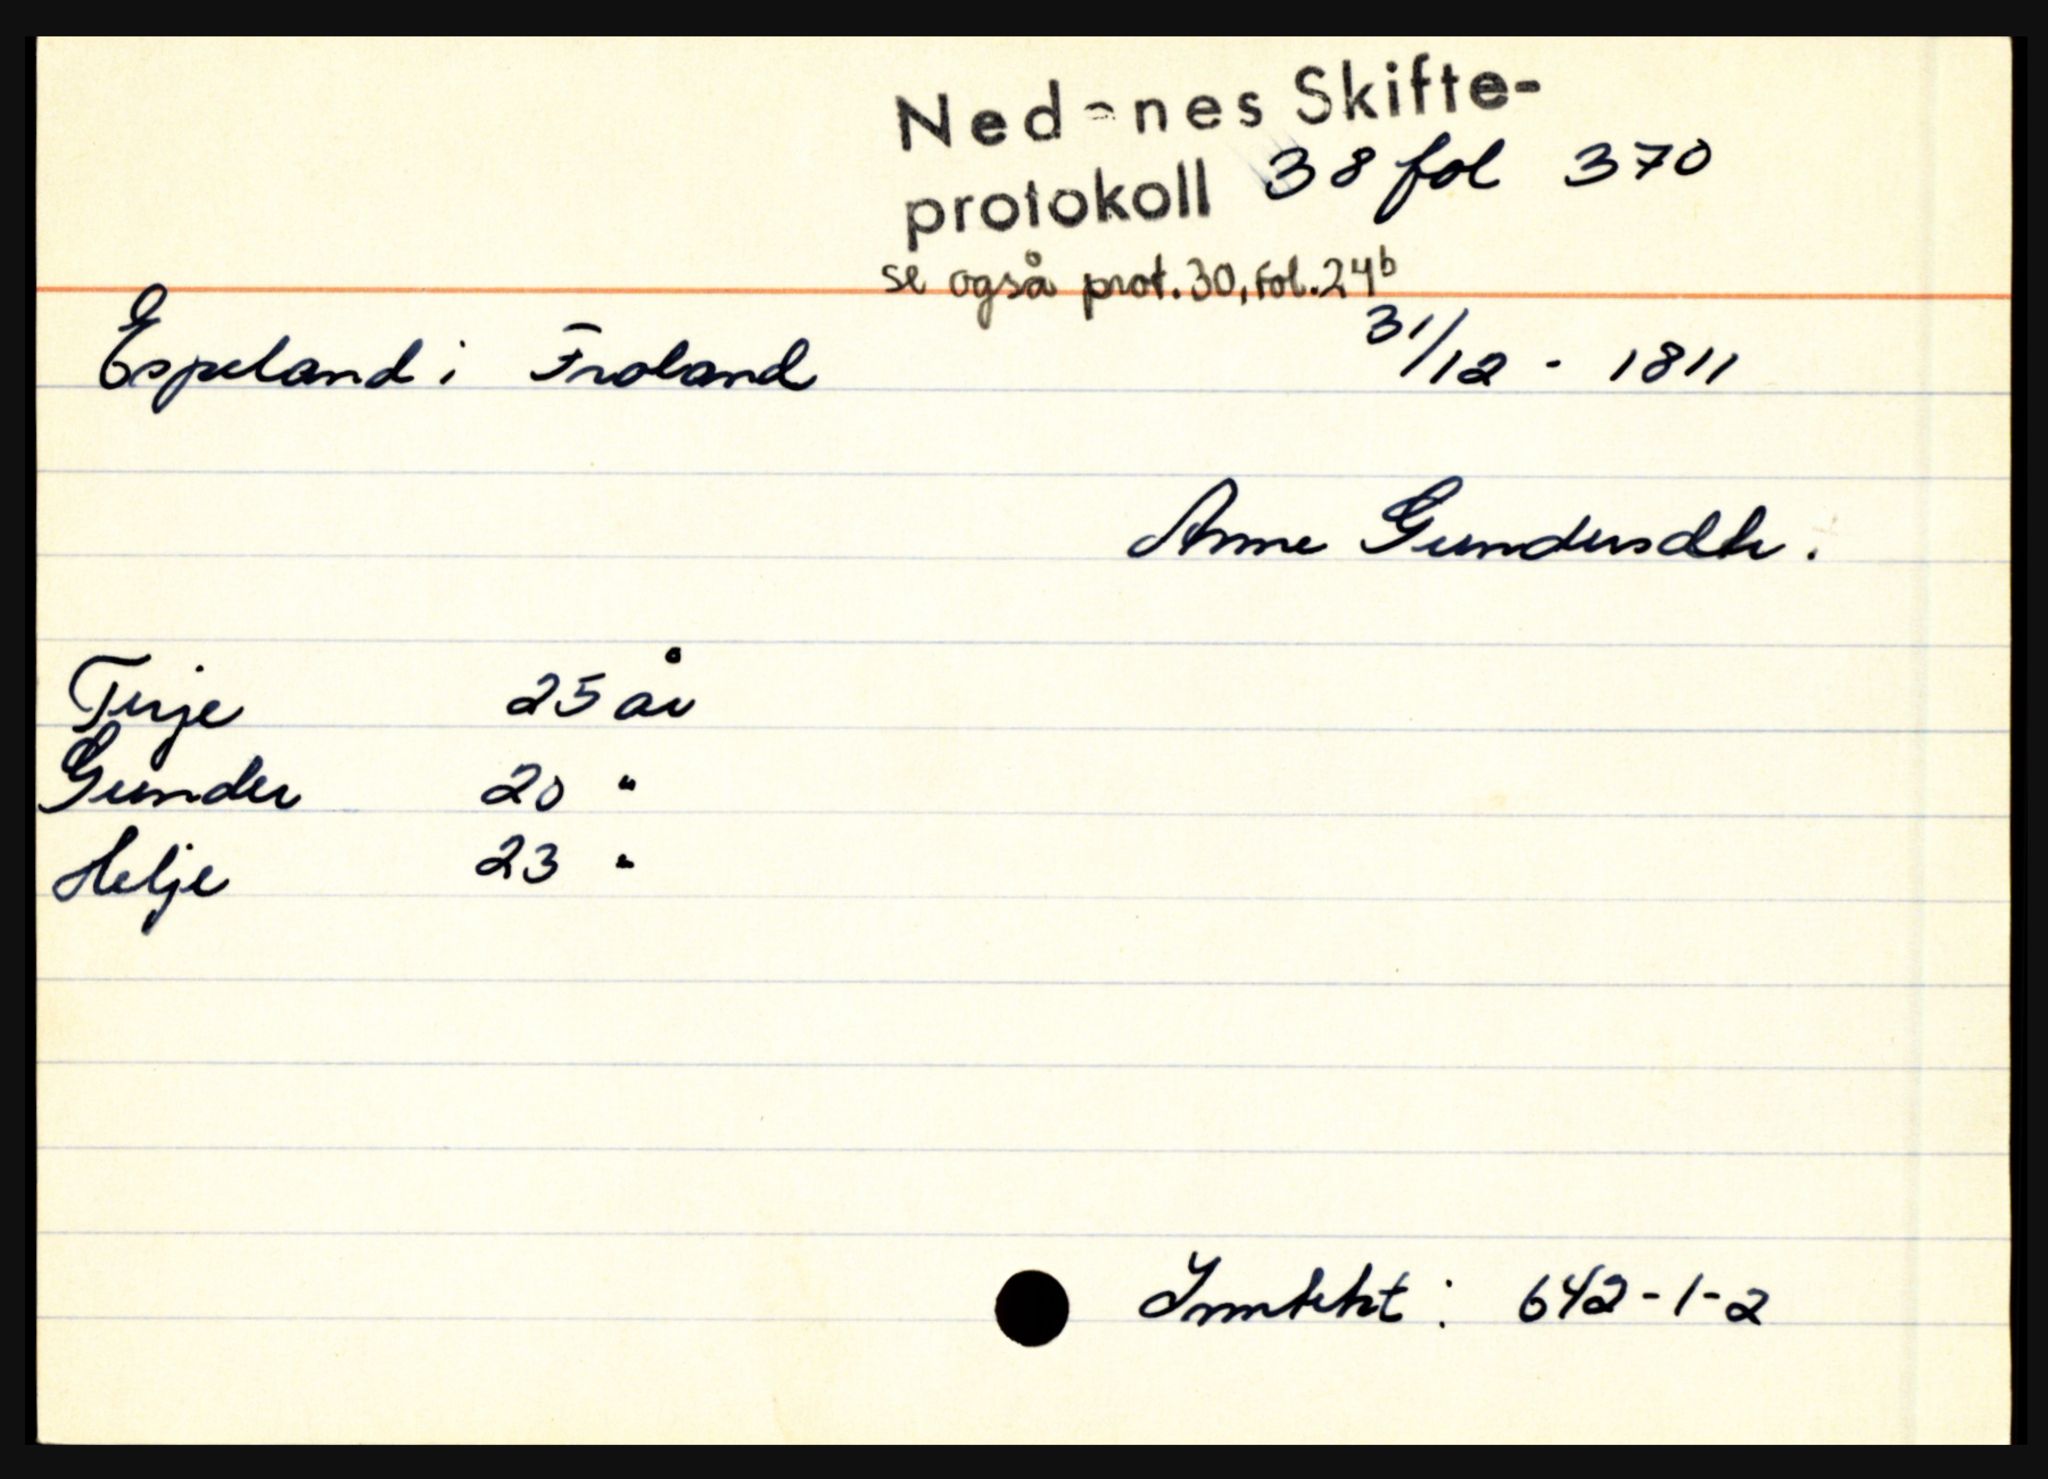 Nedenes Skifte-
protokoll 38 fol 370
se også prot. 30, fol. 24b
Espeland i Froland 31/12 - 1811
Anne Gundersdtr.
Terje 25 år
Gunder 20 "
Helje 23 "
Inntekt: 642-1-2